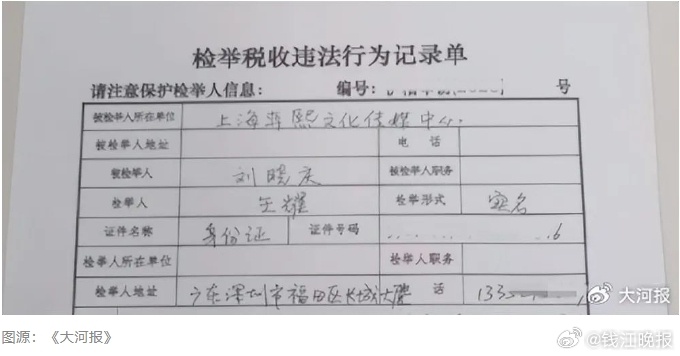 检举税收违法行为记录单
请注意保护检举人信息: 编号: 号
被检举人所在单位 上海 熙文化传媒中心
被检举人地址 电话
被检举人 刘晓庆 被检举人职务
检举人 王耀 检举形式 实名
证件名称 身份证 证件号码 6
检举人所在单位 检举人职务
检举人地址 广东深圳市福田区长城大厦 话 133
大河报
图源:《大河报》
@钱江晚报